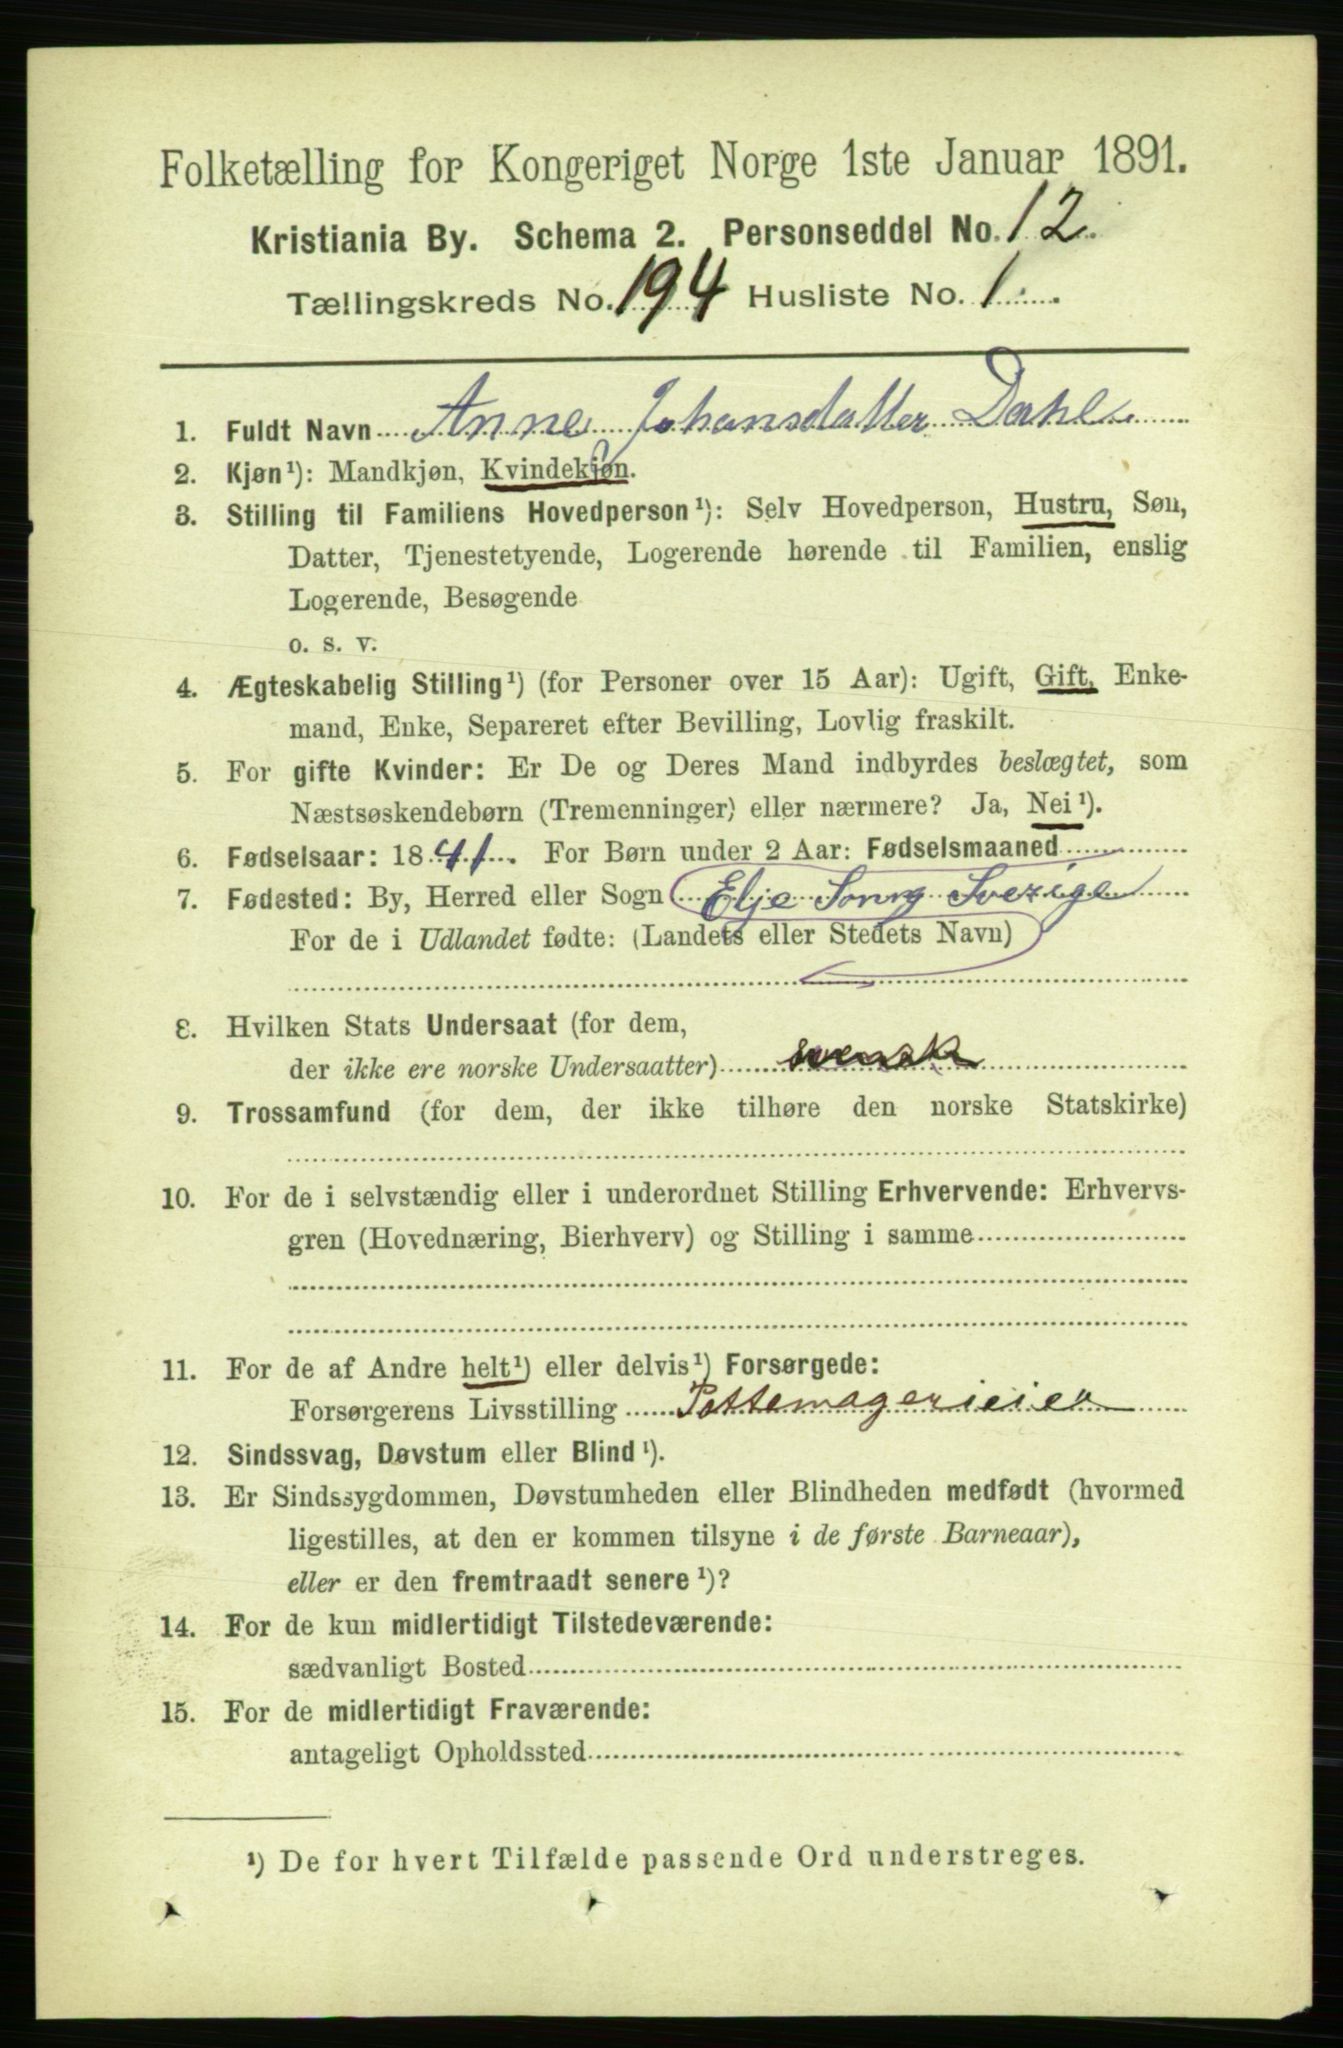 Folketælling for Kongeriget Norge 1ste Januar 1891.
Kristiania By. Schema 2. Personseddel No. 12.
Tællingskreds No. 194 Husliste No. 1.
1. Fuldt Navn Anne Johansdatter Dahl
2. Kjøn¹): Mandkjøn, Kvindekjøn.
3. Stilling til Familiens Hovedperson¹): Selv Hovedperson, Hustru, Søn,
Datter, Tjenestetyende, Logerende hørende til Familien, enslig
Logerende, Besøgende
o. s. v.
4. Ægteskabelig Stilling¹) (for Personer over 15 Aar): Ugift, Gift, Enke-
mand, Enke, Separeret efter Bevilling, Lovlig fraskilt.
5. For gifte Kvinder: Er De og Deres Mand indbyrdes beslægtet, som
Næstsøskendebørn (Tremenninger) eller nærmere? Ja, Nei¹).
6. Fødselsaar: 1841. For Børn under 2 Aar: Fødselsmaaned
7. Fødested: By, Herred eller Sogn Elje Sverige
For de i Udlandet fødte: (Landets eller Stedets Navn)
8. Hvilken Stats Undersaat (for dem,
der ikke ere norske Undersaatter) svensk
9. Trossamfund (for dem, der ikke tilhøre den norske Statskirke)
10. For de i selvstændig eller i underordnet Stilling Erhvervende: Erhvervs-
gren (Hovednæring, Bierhverv) og Stilling i samme
11. For de af Andre helt¹) eller delvis¹) Forsørgede:
Forsørgerens Livsstilling Pottemagerieier
12. Sindssvag, Døvstum eller Blind¹).
13. Er Sindssygdommen, Døvstumheden eller Blindheden medfødt (hvormed
ligestilles, at den er kommen tilsyne i de første Barneaar),
eller er den fremtraadt senere¹)?
14. For de kun midlertidigt Tilstedeværende:
sædvanligt Bosted
15. For de midlertidigt Fraværende:
antageligt Opholdssted
¹) De for hvert Tilfælde passende Ord understreges.